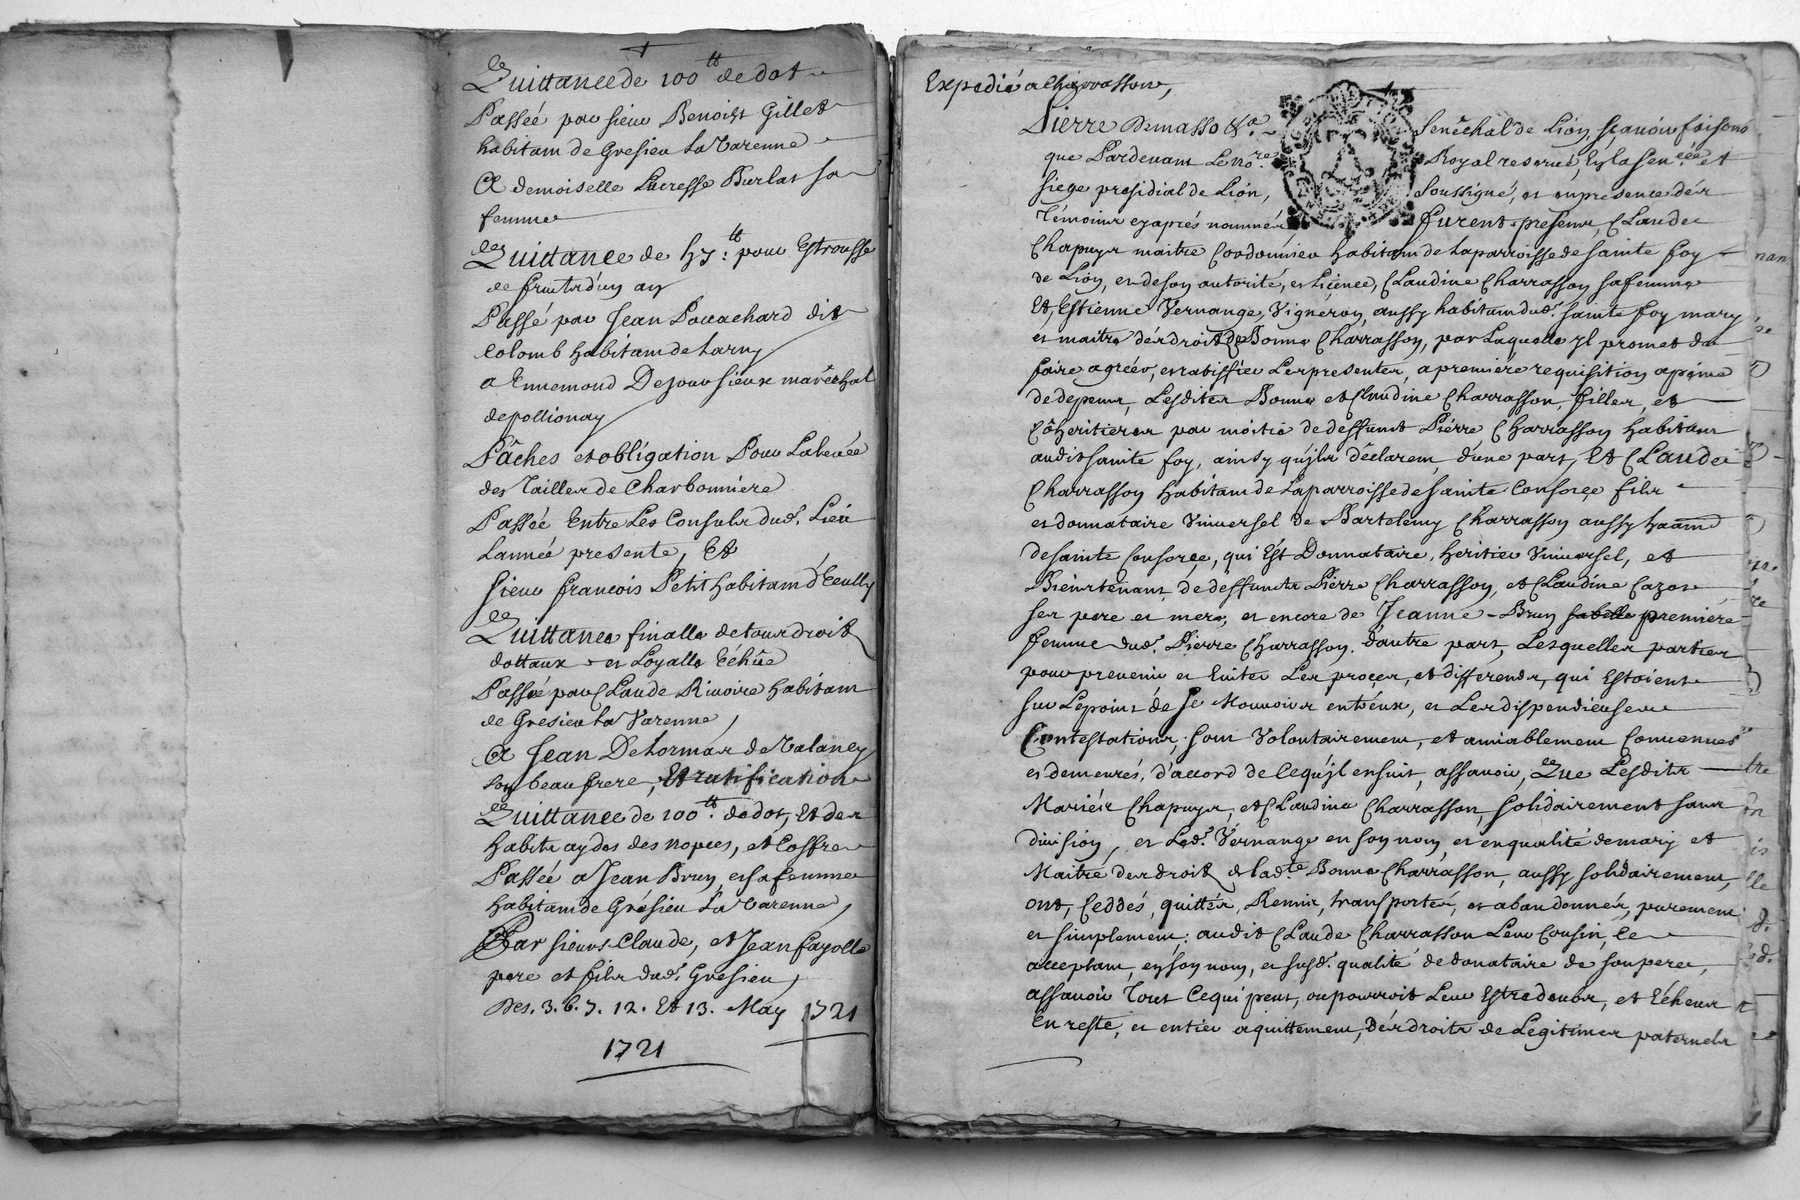 Quittance de 100 tt de dot
Passée par sieur Benoist Gillet
habitant de Gresieu La Varenne
A demoiselle Lucresse Burlat sa
femme
Quittance de pour Estrousse
de fruits d'un an
Passé par Jean Pouachard dit
Colomb habitant de
a Ennemond maréchal
de pollionay
Pâches et obligation Pour La levée
des Tailles de Charbonniere
Passée Entre Les Consuls dud. Lieu
Lannée presente, Et
sieur francois Petit habitant d'Ecully
Quittance finalle de tous droits
dottaux et Loyalle Echûe
Passée par Claude Rivoire habitant
de Gresieu La Varenne,
A Jean Delormas de Valaney
son beau frere, Et ratification
Quittance de 100 tt. de dot, Et des
habits des nopces, et Coffre
Passée a Jean Brun et sa femme
habitant de Grésieu La Varenne,
Par sieurs Claude, et Jean fayolle
pere et fils dud. Gresieu,
Des. 3. 6. 7. 12. Et 13. May 1721
1721
Expedié a Charrasson,
Pierre Demasso &a. Senêchal de Lion sçavoir faisons
que Pardevant Le no.re Royal reservé, En la sen.cée et
siege presidial de Lion, Soussigné, et en presence dés
Témoins cy aprés nommés furent presens, Claude
Chapuys maitre Cordonnier habitant de la parroisse de sainte foy
de Lion, et de son autorité, et Licence, Claudine Charrasson sa femme
Et, Estienne Vernange, Vigneron, aussy habitant dud. sainte foy mary
et maitre dés droits de Bonne Charrasson, par Laquelle yl promet de
faire agréer, et ratiffier Les presentes, a premiere requisition a peine
de depens, Lesdites Bonne et Claudine Charrasson, filles, et
Côheritieres par moitié de deffunt Piérre Charrasson habitant
audit sainte foy, ainsy qu'jls dêclarent, d'une part, Et Claude
Charrasson habitant de La parroisse de sainte Consorçe fils
et donnataire Vniversel de Bartelemy Charrasson aussy haânt
de sainte Consorce, qui Ést Donnataire, heritier Vniversel, et
Biéns tenant, de deffuncts Piérre Charrasson, et Claudine Cazot
ses pere et mere, et encore de Jeanne - Brun sabelle premiére
femme dud. Piérre Charrasson. d'autre part, Lesquelles parties
pour prevenir et Eviter Les proces, et différends, qui Estoient
sur Le point dé se Mouvoir entr'éux, et Les dispendieuses
Contestations, sont Volontairement, et amiablement Convenues
et demeurés, d'accord de Cequ'jl ensuit, assavoir, Que Lesdits
Mariés Chapuys, et Claudine Charrasson, solidairement sans
division, et Led. Vérnange en son nom, et en qualité de mary et
Maitré des droits de lad.te Bonne Charrasson, aussy solidairement,
ont, Ceddés, quittés, Remis, transportés, et abandonnés, purement
et simplement: audit Claude Charrasson Leur Cousin, Ce
acceptant, en son nom, et susd. qualité de donataire de son pere,
assavoir Tout Cequi peut, ou pourroit Leur Estre deub, et Echeus
En reste, et entier aquittement, Dés droits de Legitimes paternels